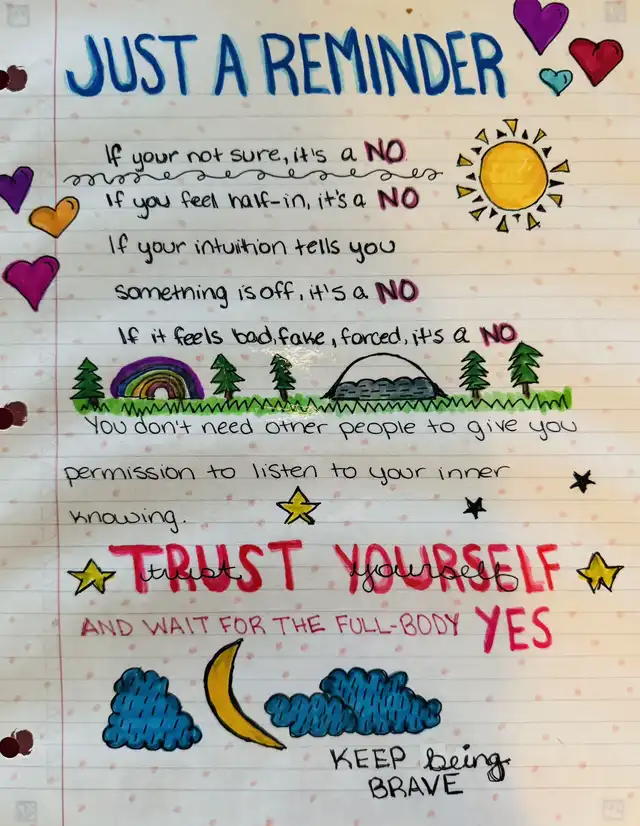 JUST A REMINDER
If your not sure, it's a NO
If you feel half-in, it's a NO
If your intuition tells you
something is off, it's a NO
If it feels bad, fake, forced, it's a NO
You don't need other people to give you
permission to listen to your inner
knowing.
TRUST YOURSELF
trust yourself
AND WAIT FOR THE FULL-BODY YES
KEEP being
BRAVE